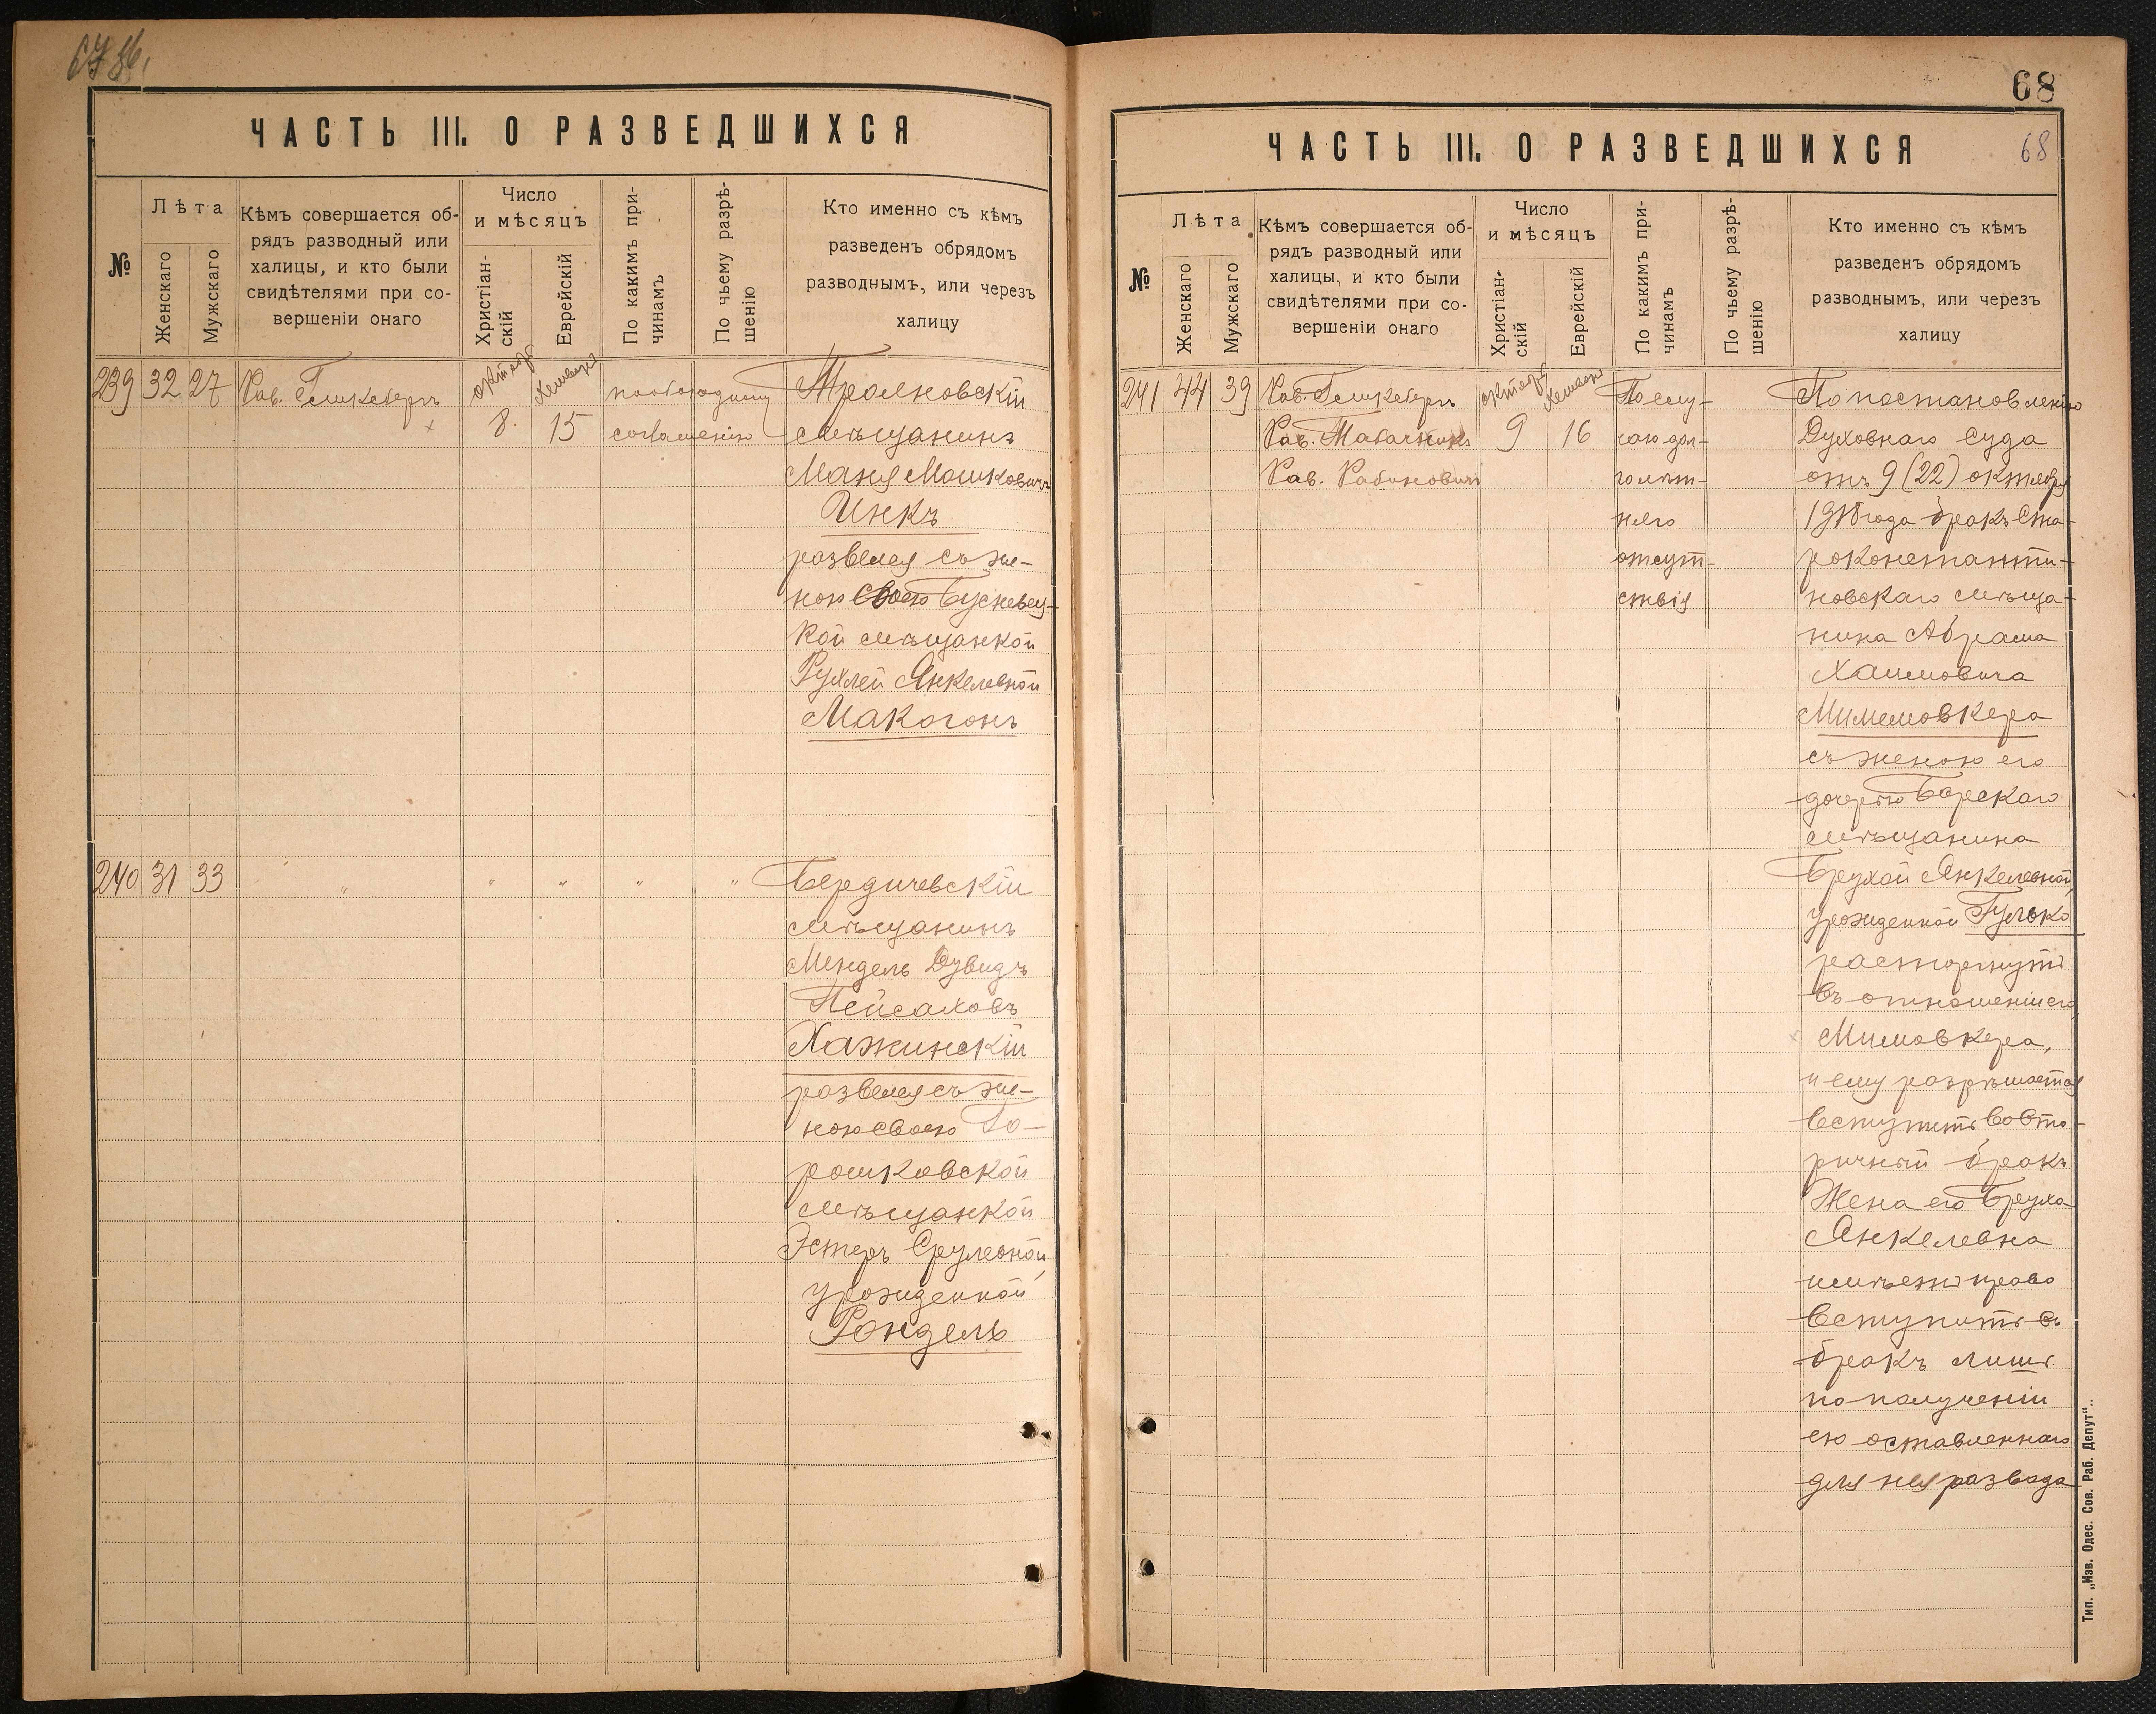 ЧАСТЬ III. О РАЗВЕДШИХСЯ
№
Лѣта
Женскаго
Мужскаго
Кѣмъ совершается об-
рядъ разводный или
халицы, и кто были
свидѣтелями при со-
вершеніи онаго
Число
и мѣсяцъ
Христіан-
скій
Еврейскій
По какимъ при-
чинамъ
По чьему разрѣ-
шенію
Кто именно съ кѣмъ
разведенъ обрядомъ
разводнымъ, или черезъ
халицу
239 32 27
Рав.
октябр
8.
15
по обоюдному
согласію
мѣщанинъ
Маня Мошковичъ
Инкъ
развелся съ же-
ною
кой мѣщанкой
Рухлей Янкелевной
Макогонъ
240 31 33
" " " " "
Бердичевскій
мѣщанинъ
Мендель Дувидъ
Пейсаховъ
Хажинскій
развелся съ же-
ною своею Го-
рошковской
мѣщанкой
Эстеръ Срулевной,
урожденной
Рондель
68
ЧАСТЬ III. О РАЗВЕДШИХСЯ
68
№
Лѣта
Женскаго
Мужскаго
Кѣмъ совершается об-
рядъ разводный или
халицы, и кто были
свидѣтелями при со-
вершеніи онаго
Число
и мѣсяцъ
Христіан-
скій
Еврейскій
По какимъ при-
чинамъ
По чьему разрѣ-
шенію
Кто именно съ кѣмъ
разведенъ обрядомъ
разводнымъ, или черезъ
халицу
241 44 39
Рав.
Рав. Табачникъ
Рав. Рабиновичъ
октябр
9
16
По слу-
чаю дол-
голѣт-
няго
отсут-
ствія
По постановленію
Духовнаго Суда
отъ 9 (22) октября
1918 года бракъ Ста-
роконстанти-
новскаго мѣща-
нина Абрама
Хаимовича
съ женою его
дочерью Барскаго
мѣщанина
Брухой Янкелевной,
урожденной Гулько
расторгнутъ
въ отношеніи его
Мимовкера,
и ему разрѣшается
вступить во вто-
ричный бракъ
Жена его Бруха
Янкелевна
имѣетъ право
вступить въ
бракъ лишь
по полученіи
ею оставленнаго
для нея развода
Тип. „Изв. Одес. Сов. Раб. Депут“.